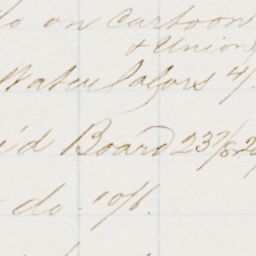 do on Cartoon
& Union
Water Colors 4/.
'd Board 237/8 2
do. 10/6.